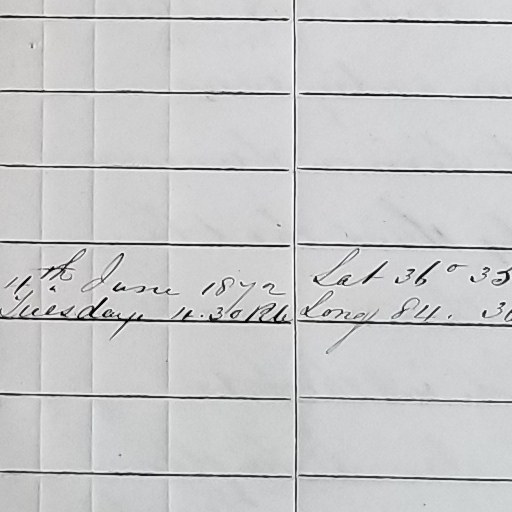 4th June 1872
Tuesday 4.30 PM
Lat 36° 35
Long 84. 30